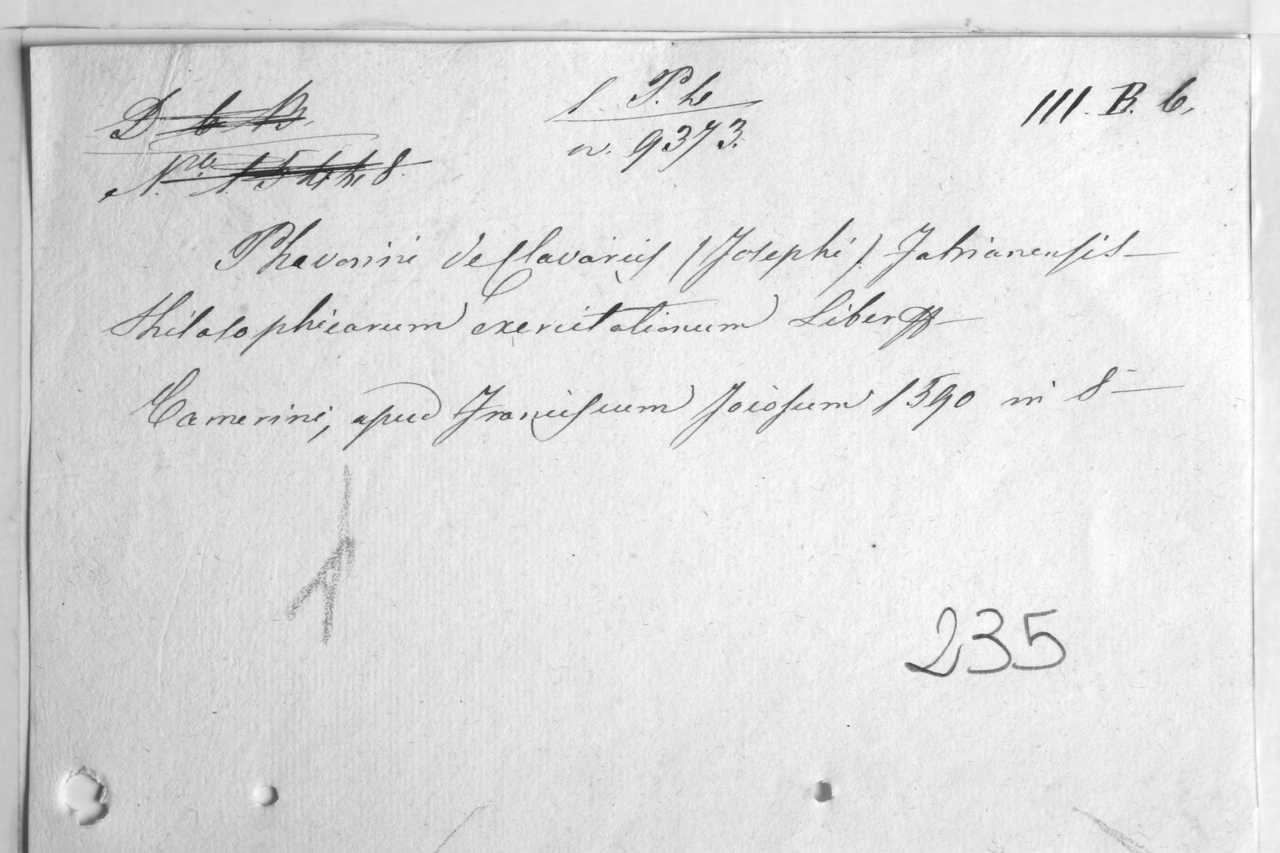 D 6 B.
N.ro 15448.
l. Ph
n. 9373.
III. B. 6.
Phavonini de Clavariis (Josephi) Fabrianensis
Philosophicarum exercitationum Liber
Camerini, apud Franciscum Joiosum 1590 in 8
1
235